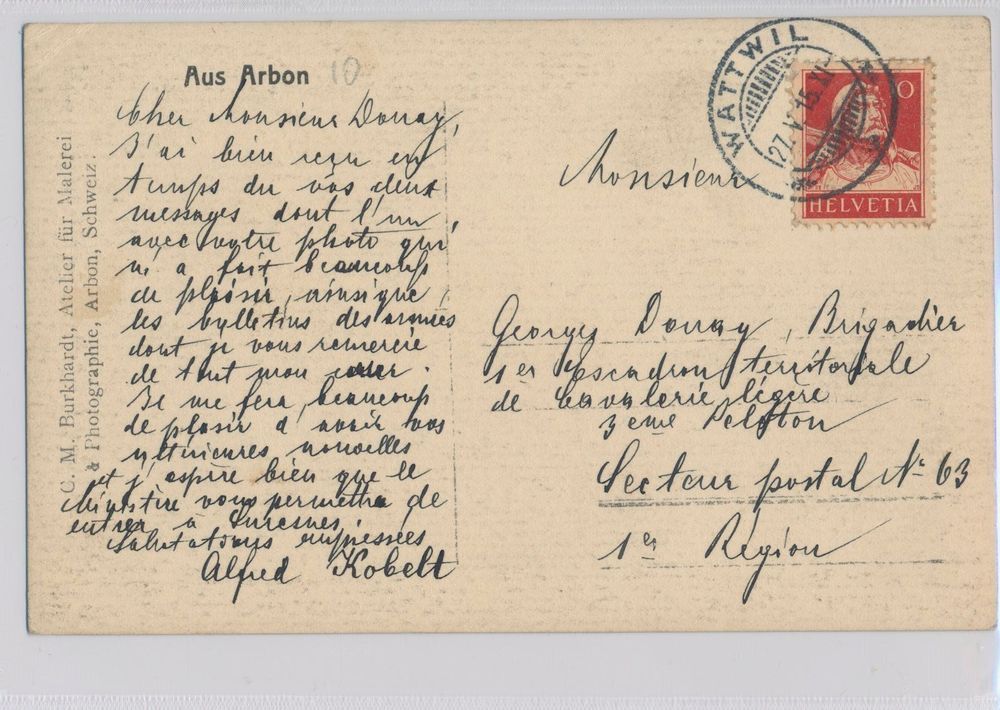 Aus Arbon 10
Cher Monsieur Donay,
J'ai bien reçu en
temps du vos deux
messages dont l'un
avec votre photo qui
m'a fait beaucoup
de plaisir, ainsique
les bylletins des armées
dont je vous remercie
de tout mon cœur.
Je me fera beaucoup
de plaisir d'avoir vos
ultérieures nouvelles
et j'espère bien que le
Ministère vous permettra de
entrer à Suresnes.
Salutations empressées
Alfred Kobelt
C. M. Burkhardt, Atelier für Malerei
& Photographie, Arbon, Schweiz.
WATTWIL
27. V. 15. VI
10
HELVETIA
Monsieur
Georges Donay, Brigadier
1er Escadron territoriale
de Cavalerie légère
3eme Peloton
Secteur postal No 63
1er Région